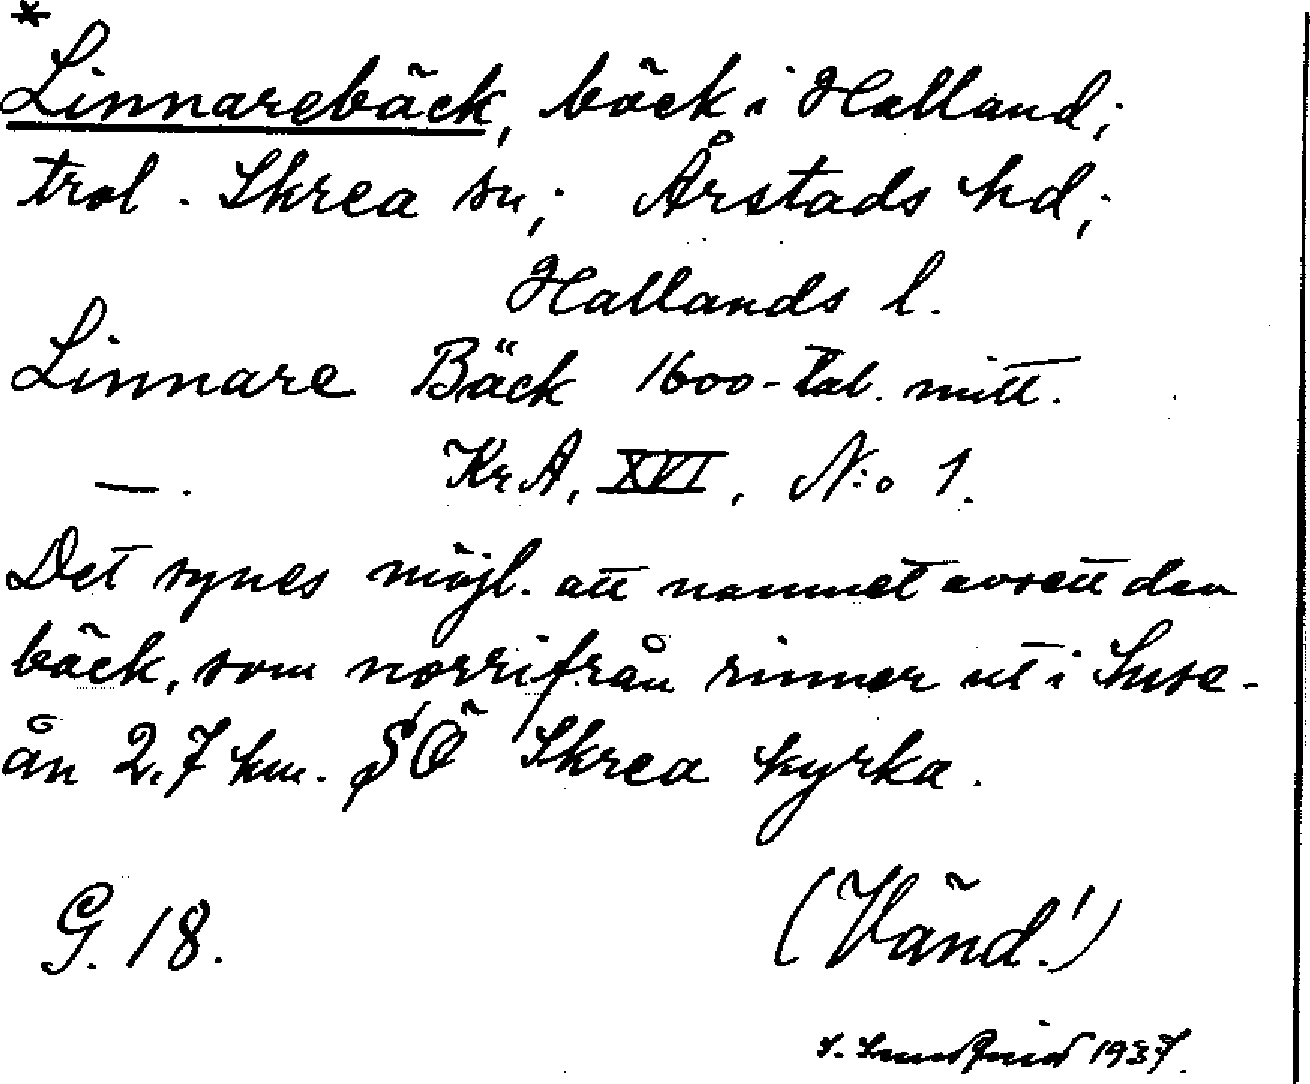 *
Linnarebäck, bäck i Halland;
trol. Skrea sn; Årstads hd;
Hallands l.
Linnare Bäck 1600-tal. mitt.
—. KrA, XVI, N:o 1.
Det synes möjl. att namnet avsett den
bäck, som norrifrån rinner ut i Suse-
ån 2,7 km. SÖ Skrea kyrka.
G. 18. (Vänd!)
1937.